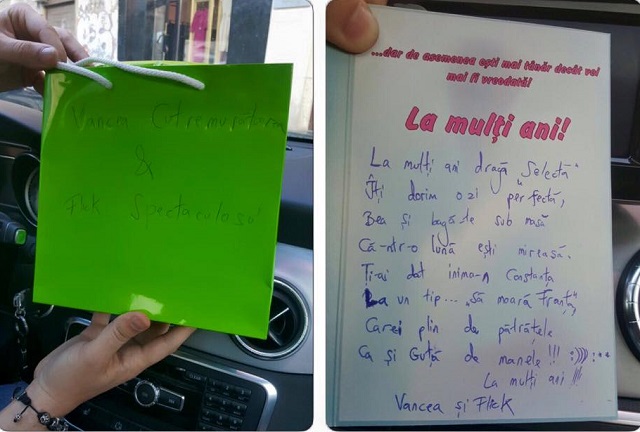 Vancea Cutremurătorul
&
Flick Spectaculosu'
...dar de asemenea ești mai tânăr decât vei
mai fi vreodată!
La mulți ani!
La mulți ani dragă "Selecta"
Îți dorim o zi perfectă,
Bea și bagă de sub masă
Că-ntr-o lună ești mireasă.
Ți-ai dat inima-n Constanța
La un tip... "să moară Franța"
Care-i plin de pătrățele
Ca și Guță de manele!!! :)))) :**
La mulți ani!!!
Vancea și Flick